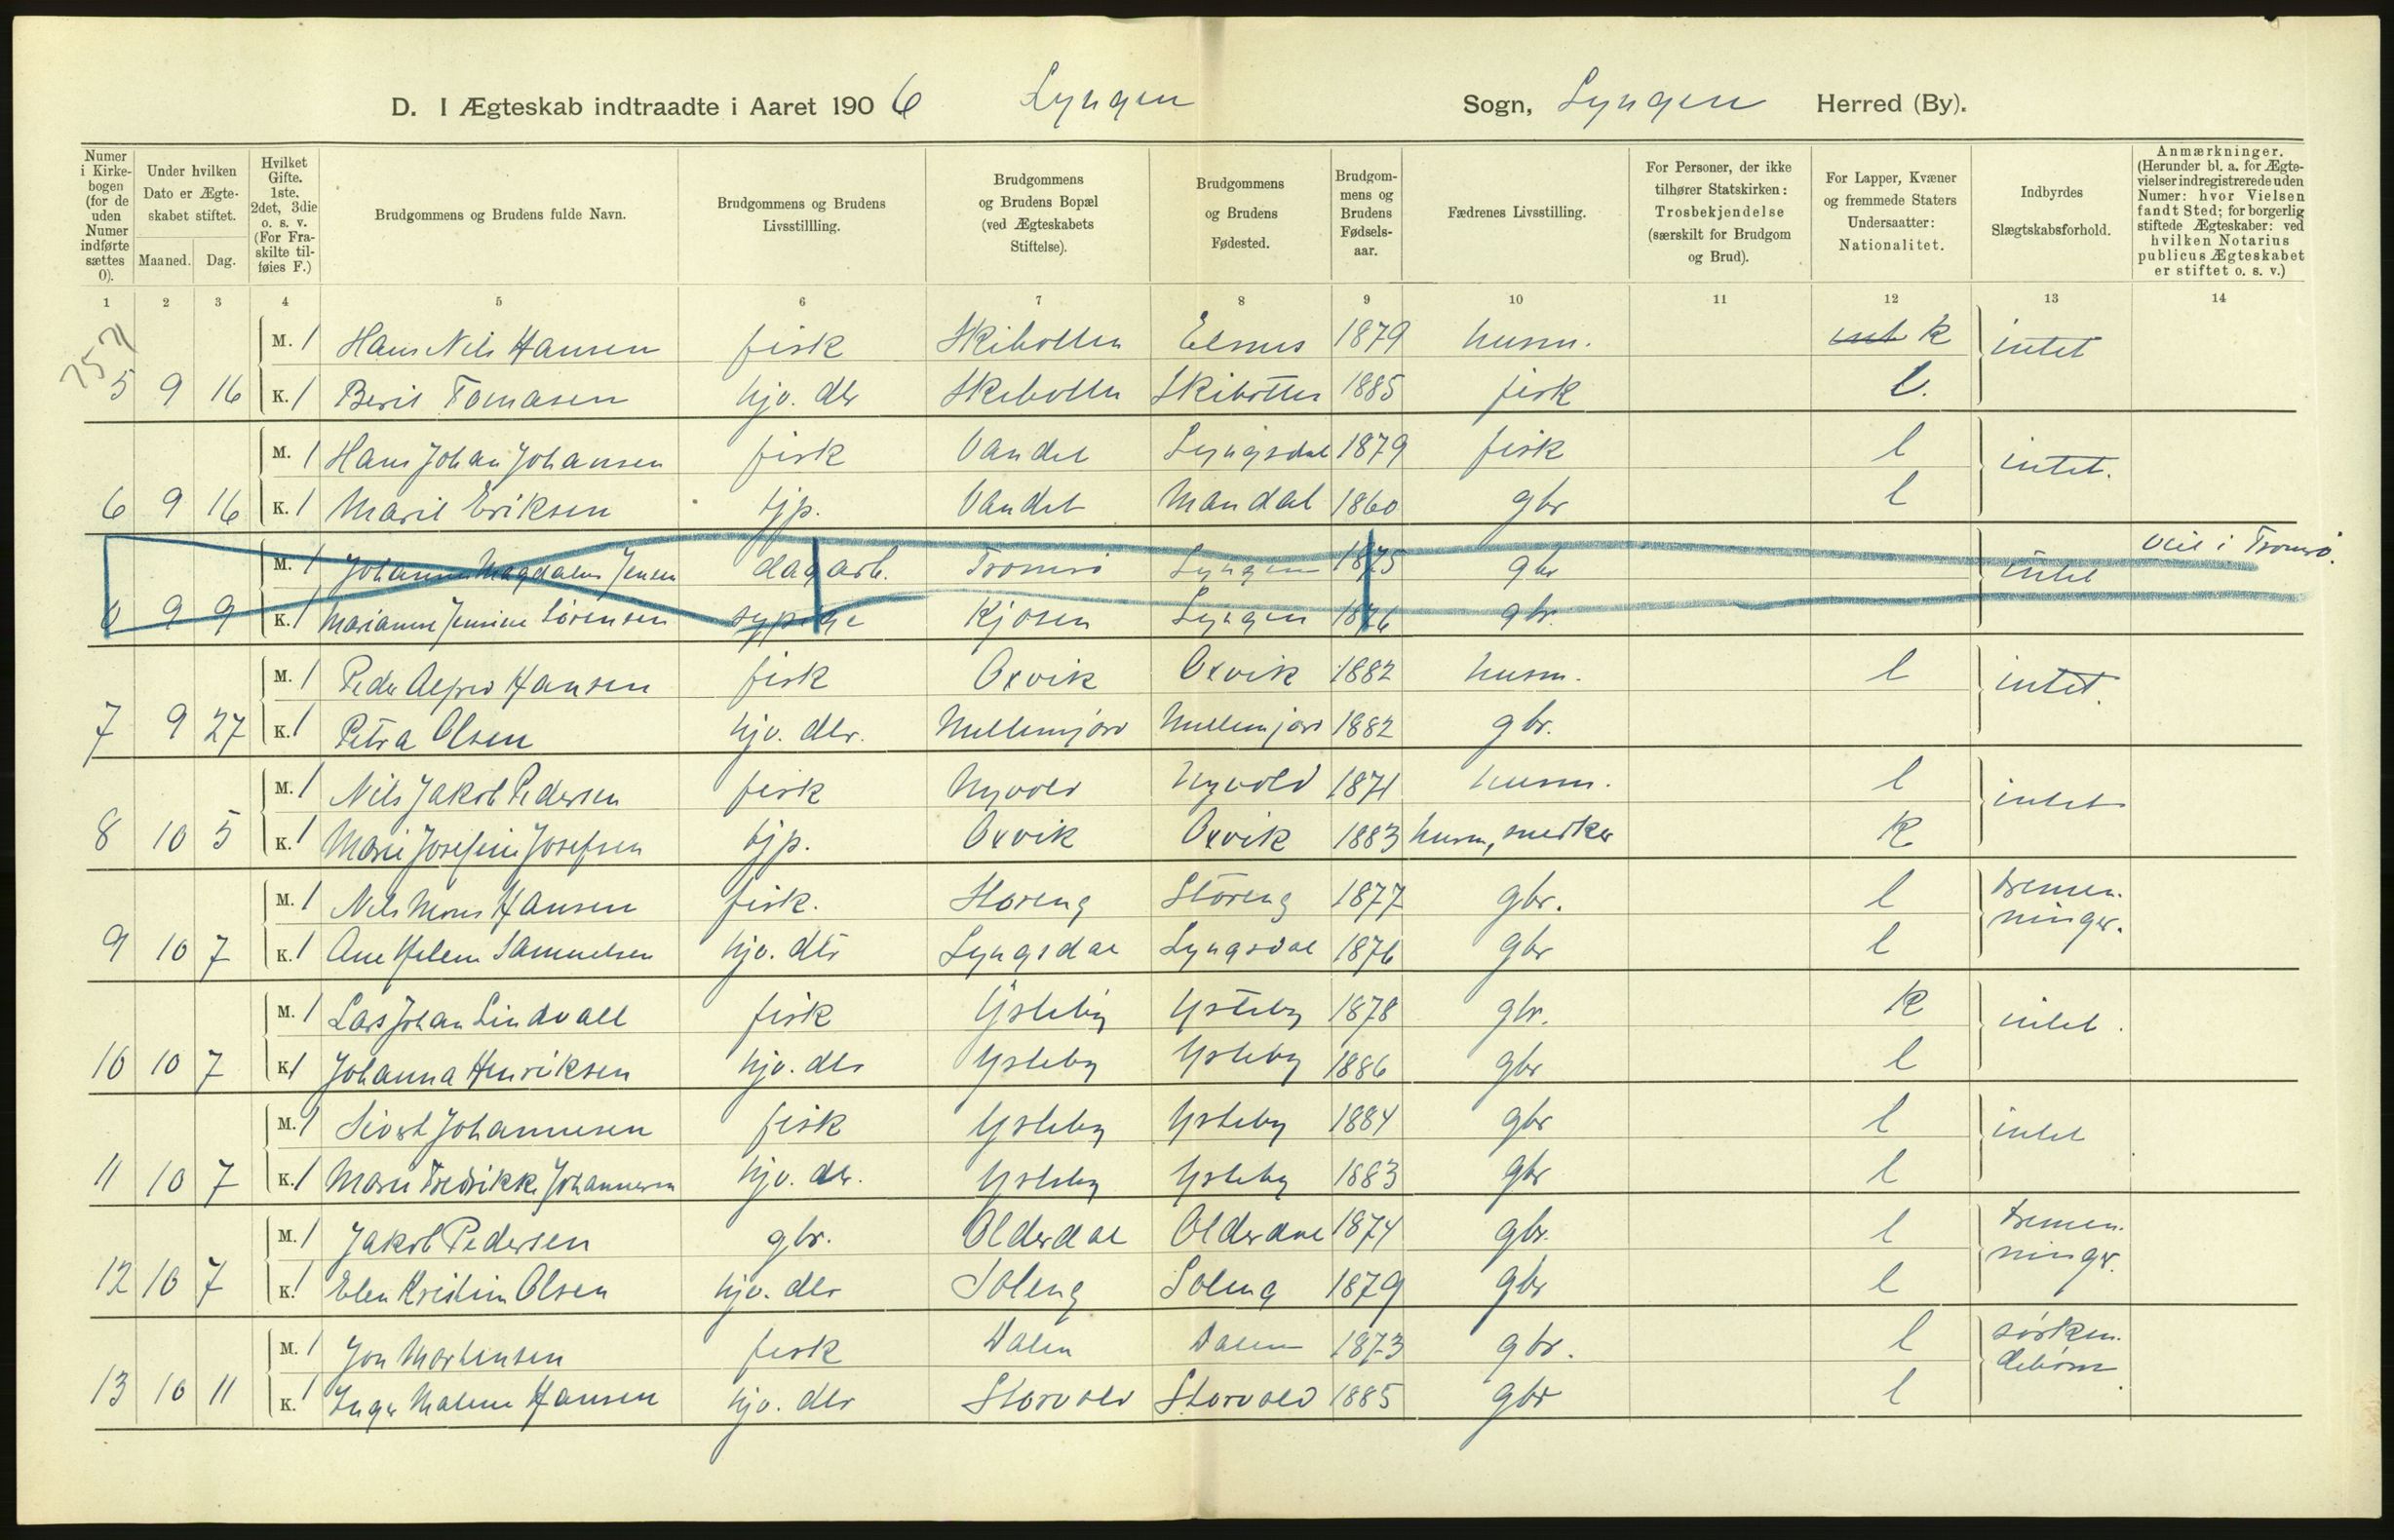 D. I Ægteskab indtraadte i Aaret 1906 Lyngen Sogn, Lyngen Herred (By).
Numer i Kirkebogen (for de uden Numer indførte sættes 0).
Under hvilken Dato er Ægteskabet stiftet.
Maaned. Dag.
Hvilket Gifte. 1ste, 2det, 3die o. s. v. (For Fraskilte tilføies F.)
Brudgommens og Brudens fulde Navn.
Brudgommens og Brudens Livsstillling.
Brudgommens og Brudens Bopæl (ved Ægteskabets Stiftelse).
Brudgommens og Brudens Fødested.
Brudgommens og Brudens Fødselsaar.
Fædrenes Livsstilling.
For Personer, der ikke tilhører Statskirken: Trosbekjendelse (særskilt for Brudgom og Brud).
For Lapper, Kvæner og fremmede Staters Undersaatter: Nationalitet.
Indbyrdes Slægtskabsforhold.
Anmærkninger. (Herunder bl. a. for Ægtevielser indregistrerede uden Numer: hvor Vielsen fandt Sted; for borgerlig stiftede Ægteskaber: ved hvilken Notarius publicus Ægteskabet er stiftet o. s. v.)
1 2 3 4 5 6 7 8 9 10 11 12 13 14
M. 1 Hans Nils Hansen fisk Skibotten Elsnes 1879 husm. k intet
5 9 16 K. 1 Berit Tomasen hjv. dtr Skibotten Skibotten 1885 fisk l.
M. 1 Hans Johan Johansen fisk Vandet Lyngsdal 1879 fisk l intet.
6 9 16 K. 1 Marit Eriksen tjp. Vandet Mandal 1860 gbr l
M. 1 Johannes Magdalus Jensen dagarb. Tromsö Lyngen 1875 gbr intet viet i Tromsö.
0 9 9 K. 1 Marianne Jensine Sörensen sypige Kjosen Lyngen 1876 gbr.
M. 1 Peder Alfred Hansen fisk Oxvik Oxvik 1882 husm. l intet.
7 9 27 K. 1 Petra Olsen hjv. dtr. 1882 gbr.
M. 1 Nils Jakob Pedersen fisk Nyvold Nyvold 1871 husm. l intet
8 10 5 K. 1 Marie Josefine Josefsen tjp. Oxvik Oxvik 1883 husm, snedker k
M. 1 Nils Mons Hansen fisk. Storeng Storeng 1877 gbr. l tremenninger.
9 10 7 K. 1 Ane Helene Samuelsen hjv. dtr Lyngsdal Lyngsdal 1876 gbr l
M. 1 Lars Johan Lindvall fisk Ysteby Ysteby 1878 gbr. k intet.
10 10 7 K. 1 Johanna Henriksen hjv. dtr Ysteby Ysteby 1886 gbr l
M. 1 Sivert Johannesen fisk Ysteby Ysteby 1884 gbr l intet
11 10 7 K. 1 Marie Fredrikke Johannesen hjv. dtr. Ysteby Ysteby 1883 gbr l
M. 1 Jakob Pedersen gbr. Olderdal Olderdal 1874 gbr. l tremenninger.
12 10 7 K. 1 Elen Kristine Olsen hjv. dtr Soleng Soleng 1879 gbr l
M. 1 Jon Mortensen fisk Dalen Dalen 1873 gbr. l söskendebörn.
13 10 11 K. 1 Inger Malene Hansen hjv. dtr Storvold Storvold 1885 gbr l